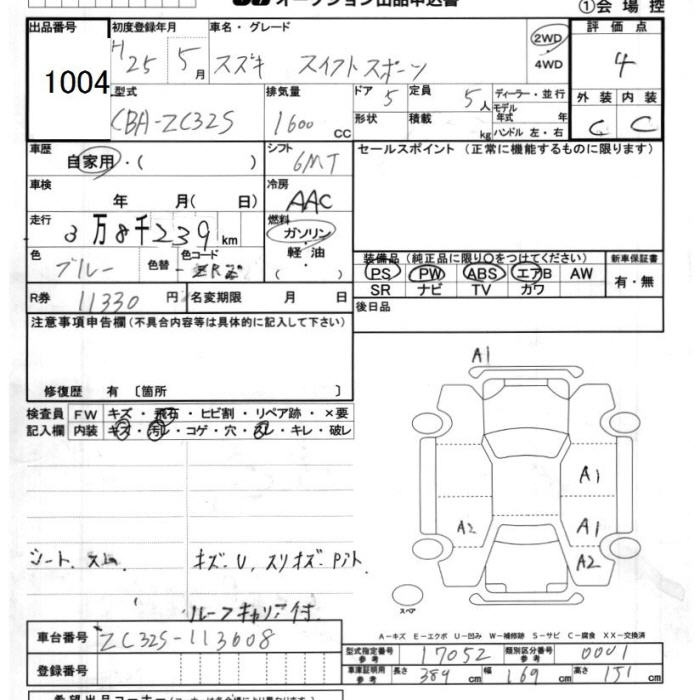 オークション出品申込書
①会場控
出品番号 初度登録年月 車名・グレード 2WD 評価点
1004 H25 5月 スズキ スイフトスポーツ 4WD 4
型式 排気量 ドア 5 定員 5人 ディーラー・並行 外装 内装
CBA-ZC32S 1600 CC 形状 積載 kg モデル年式 年 C C
ハンドル 左・右
車歴 自家用・( ) シフト 6MT セールスポイント (正常に機能するものに限ります)
車検 年 月( 日) 冷房 AAC
走行 3万8千239km 燃料 ガソリン・軽油・( )
色 ブルー 色替 色コード 装備品 (純正品に限り○をつけてください) 新車保証書
PS PW ABS エアB AW 有・無
SR ナビ TV カワ
R券 11330円 名変期限 月 日 後日品
注意事項申告欄(不具合内容等は具体的に記入して下さい)
修復歴 有 〔箇所 〕
検査員 FW キズ・飛石・ヒビ割・リペア跡・×要
記入欄 内装 キズ・汚レ・コゲ・穴・スレ・キレ・破レ
A1
A1
A2 A1
A2
シート キズ・U スリキズ
ルーフキャリア付
スペア
A-キズ E-エクボ U-凹み W-補修跡 S-サビ C-腐食 XX-交換済
車台番号 ZC32S-113608
型式指定番号参考 17052 類別区分番号参考 0001
登録番号 車庫証明用参考 長さ 389cm 幅 169cm 高さ 151cm